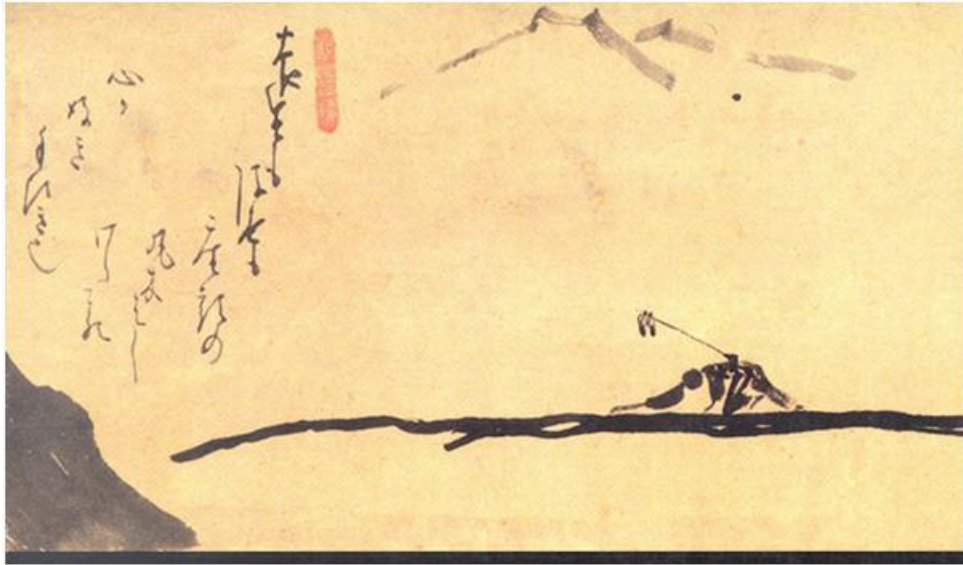 養生も
浮世も
座頭の
丸木はし
わたる
心か
よき
手ひき也